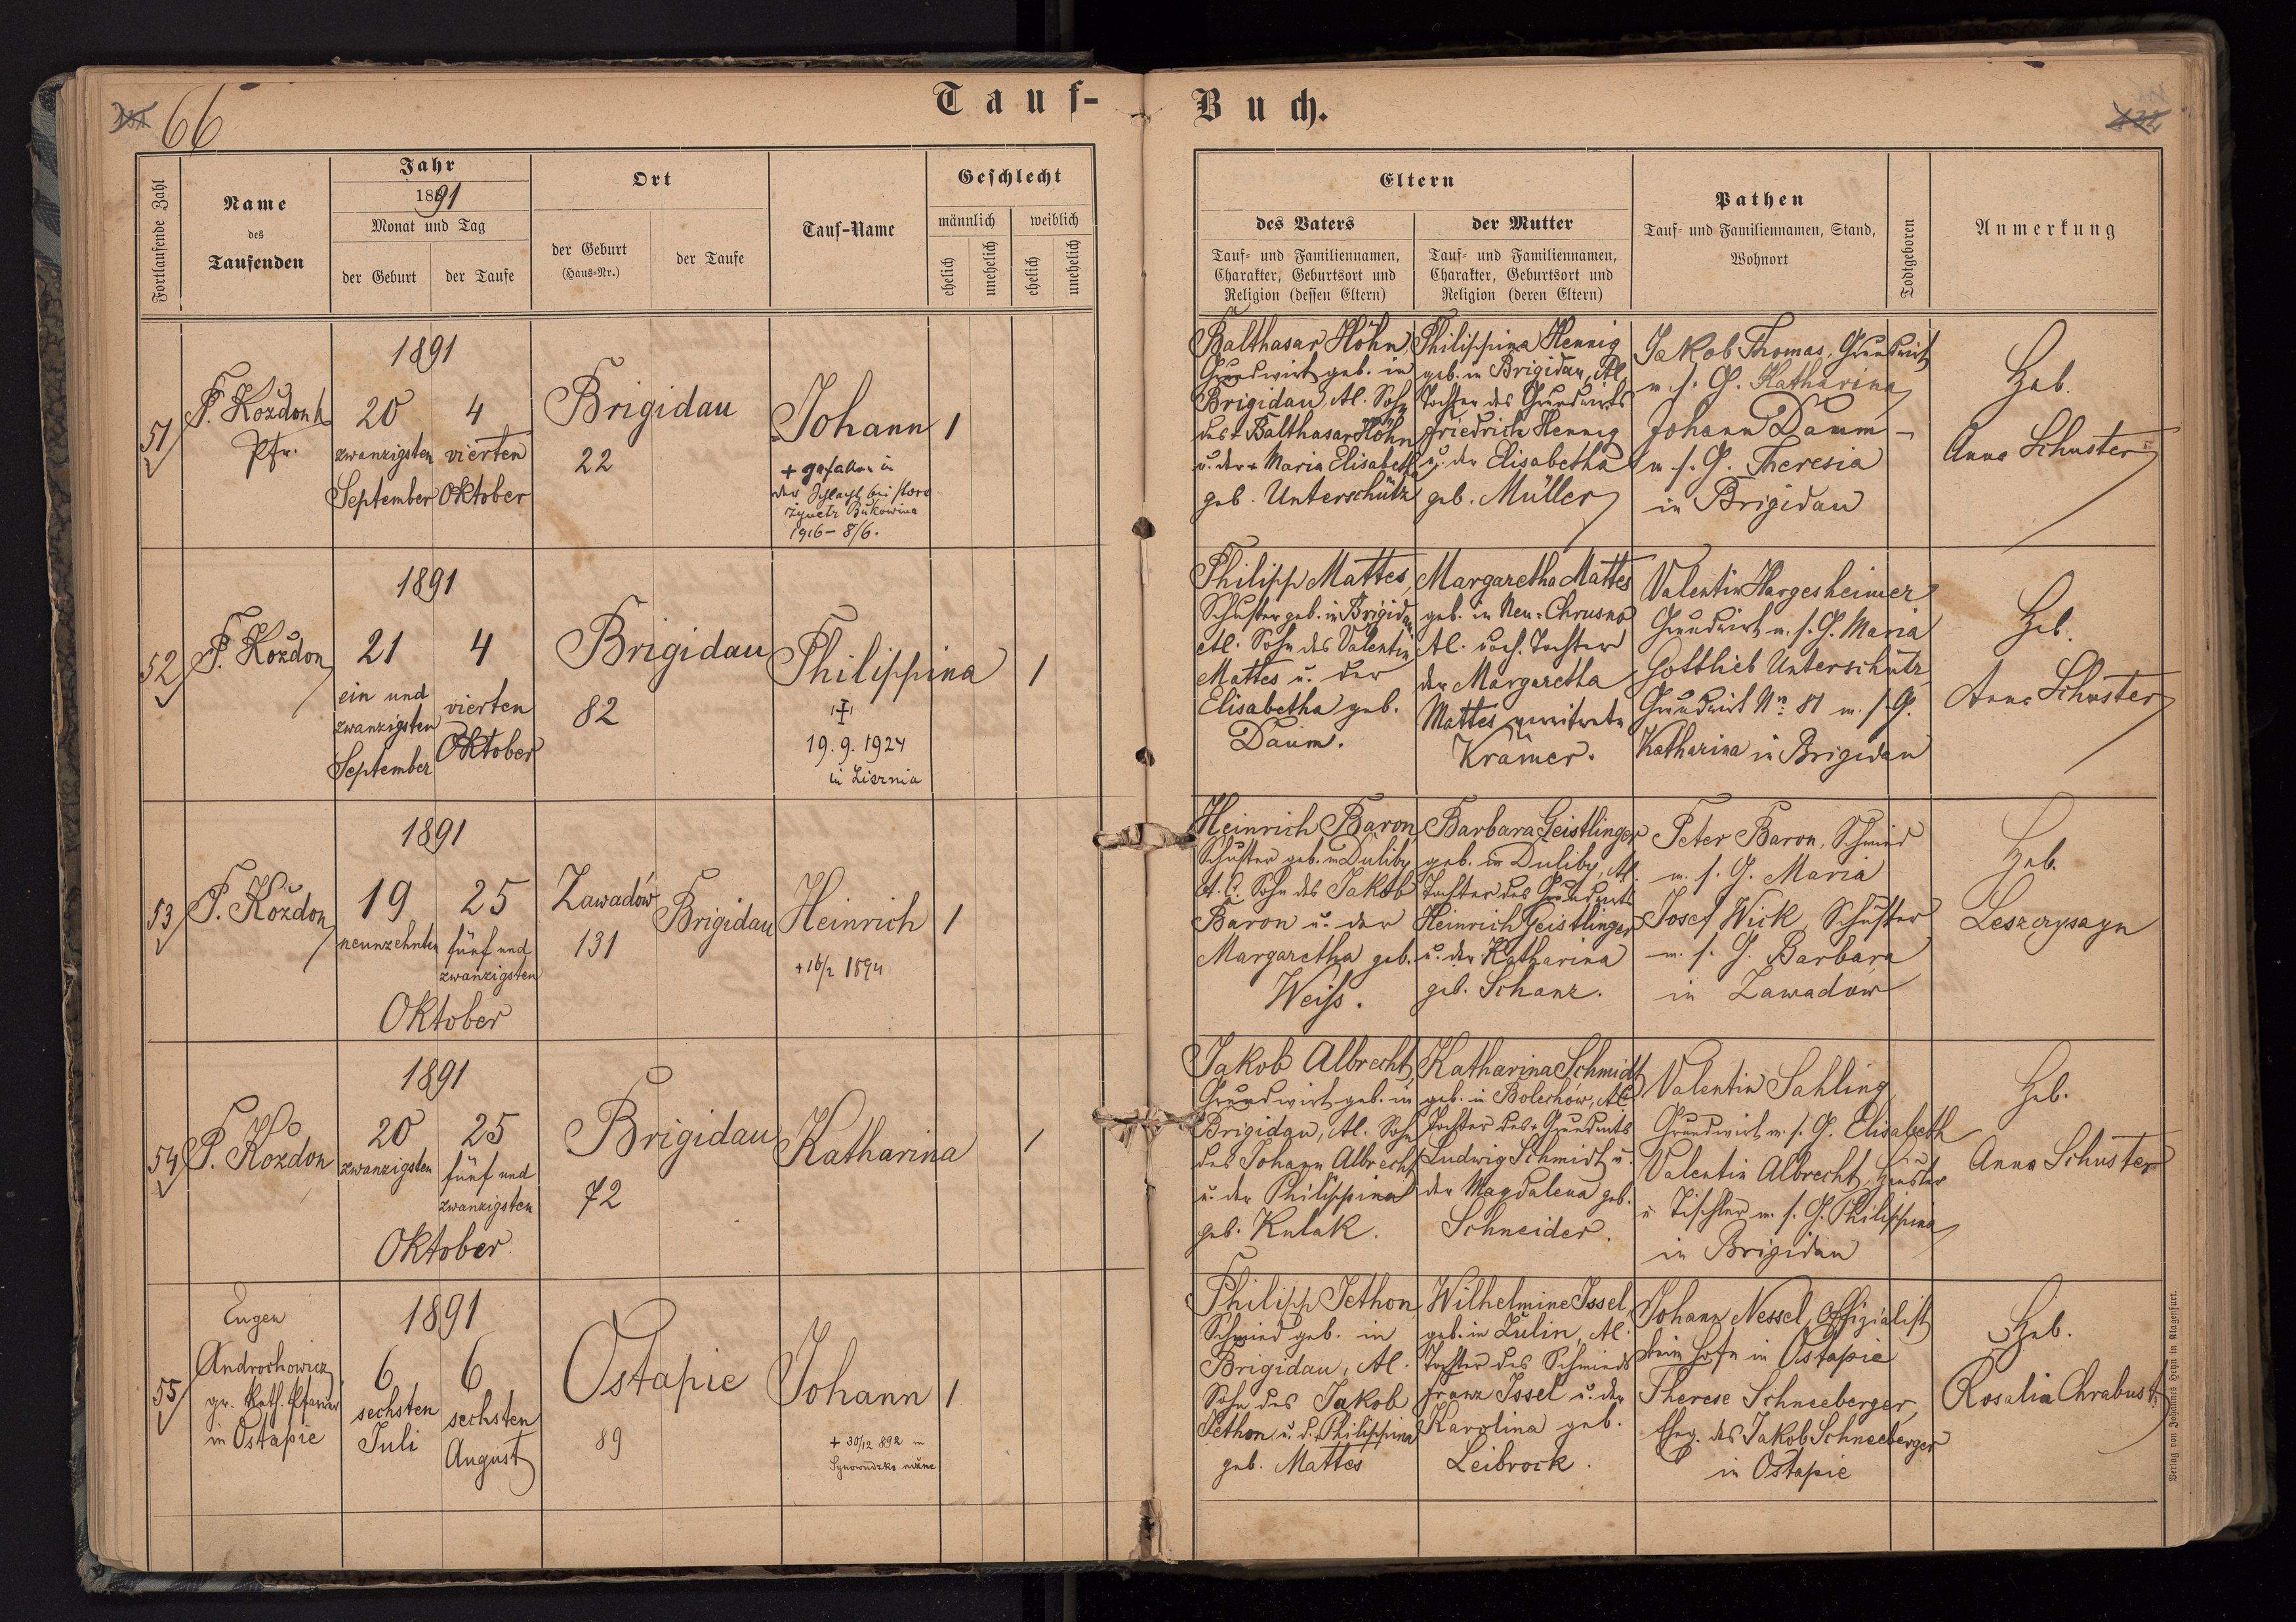 66
Tauf-
Buch.
Fortlaufende Zahl
Name
des
Taufenden
Jahr
1891
Monat und Tag
der Geburt
der Taufe
Ort
der Geburt
(Haus-Nr.)
der Taufe
Tauf-Name
Geschlecht
männlich
weiblich
ehelich
unehelich
ehelich
unehelich
Eltern
des Vaters
Tauf- und Familiennamen,
Charakter, Geburtsort und
Religion (dessen Eltern)
der Mutter
Tauf- und Familiennamen,
Charakter, Geburtsort und
Religion (deren Eltern)
Pathen
Tauf- und Familiennamen, Stand,
Wohnort
Todtgeboren
Anmerkung
51
Pfr.
1891
20
zwanzigsten
September
4
vierten
Oktober
Brigidau
22
Johann
+ gefallen in
der Schlacht bei
Bukowina
1916 - 8/6.
1
Balthasar Höhn
Grundwirt geb. in
Brigidau, Al. Sohn
des + Balthasar Höhn
u. der + Maria Elisabeth
geb. Unterschütz
Philippina Hennig
geb. in Brigidau, Al.
Tochter des Grundwirts
Friedrich Hennig
u. der Elisabetha
geb. Müller
Jakob Thomas, Grundwirt
m. s. G. Katharina
Johann Daum -
m. s. G. Theresia
in Brigidau
Heb.
Anna Schuster
52
P. Kozdon
1891
21
ein und
zwanzigsten
September
4
vierten
Oktober
Brigidau
82
Philippina
+
19. 9. 1924
in
1
Philipp Mattes,
Schuster geb. in Brigidau
Al. Sohn des Valentin
Mattes u. der
Elisabetha geb.
Daum.
Margaretha Mattes
geb. in Neu-Chrusno
Al. Tochter
der Margaretha
Mattes
Krämer.
Valentin Hargesheimer
Grundwirt m. s. G. Maria
Gottlieb Unterschütz
Grundwirt No. 81 m. s. G.
Katharina in Brigidau
Heb.
Anna Schuster
53
P. Kozdon
1891
19
neunzehnten
25
fünf und
zwanzigsten
Oktober
Zawadów
131
Brigidau
Heinrich
+ 16/2 1894
1
Heinrich Baron
Schuster geb. in Duliby
A. C. Sohn des Jakob
Baron u. der
Margaretha geb.
Weiss.
Barbara Geistlinger
geb. in Duliby, Al.
Tochter des Grundwirts
Heinrich Geistlinger
u. der Katharina
geb. Schanz.
Peter Baron, Schmied
m. s. G. Maria
Josef Wick, Schuster
m. s. G. Barbara
in Zawadów
Heb.
54
P. Kozdon
1891
20
zwanzigsten
25
fünf und
zwanzigsten
Oktober
Brigidau
72
Katharina
1
Jakob Albrecht,
Grundwirt geb. in
Brigidau, Al. Sohn
des Johann Albrecht
u. der Philippina
geb. Kulak.
Katharina Schmidt
geb. in Bolechów, Al.
Tochter des + Grundwirts
Ludwig Schmidt u.
der Magdalena geb.
Schneider.
Valentin Sahling
Grundwirt m. s. G. Elisabeth
Valentin Albrecht, Häusler
u. Tischler m. s. G. Philippina
in Brigidau
Heb.
Anna Schuster
55
Eugen
Androchowicz
gr. Kath. Pfarrer
in Ostapie
1891
6
sechsten
Juli
6
sechsten
August
Ostapie
89
Johann
+ 30/12 892 in
Synowudzko niżne
1
Philipp Jethon,
Schmied geb. in
Brigidau, Al.
Sohn des Jakob
Jethon u. d. Philippina
geb. Mattes
Wilhelmine Issel,
geb. in Zulin, Al.
Tochter des Schmieds
Franz Issel u. der
Karolina geb.
Leibrock.
Johann Nessel, Offizialist
beim Hofe in Ostapie
Therese Schneeberger,
Eheg. des Jakob Schneeberger
in Ostapie
Heb.
Rosalia Chrabust
Verlag von Johannes Heyn in Klagenfurt.